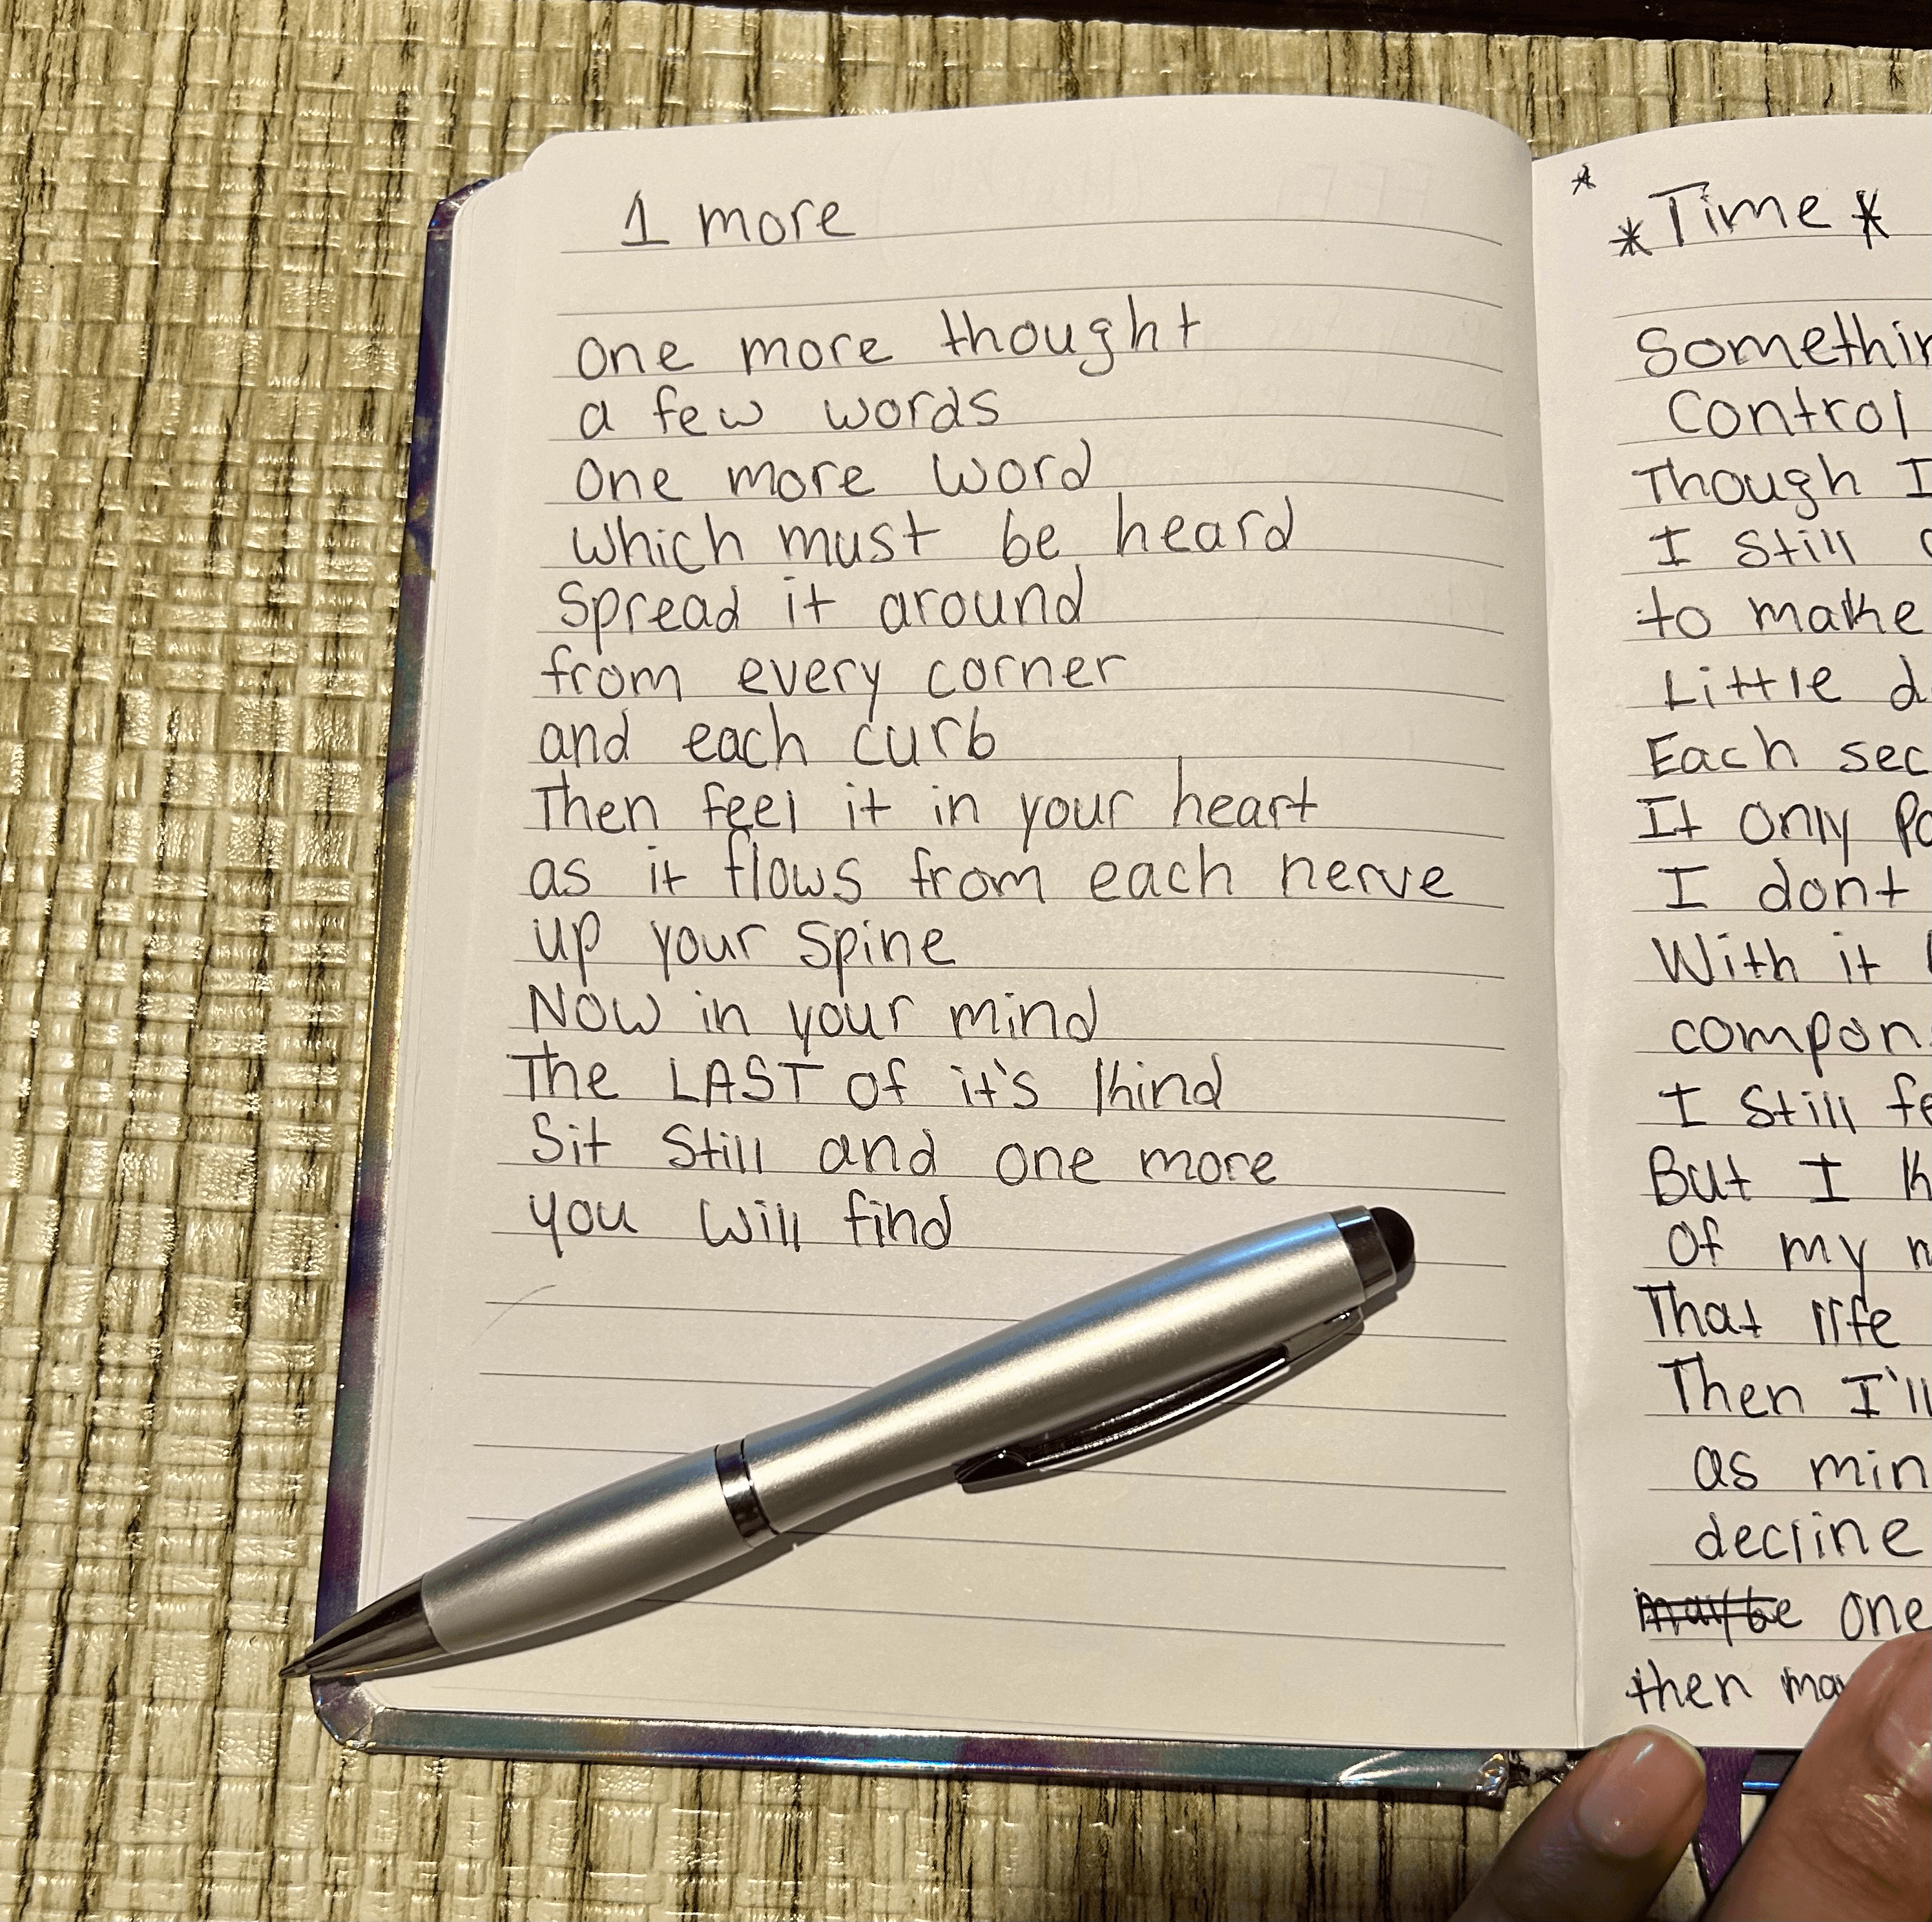 1 more
One more thought
a few words
One more word
Which must be heard
Spread it around
from every corner
and each curb
Then feel it in your heart
as it flows from each nerve
up your spine
Now in your mind
The LAST of it's kind
Sit still and one more
you will find
*
*Time*
Control
Though I
I still
to make
Little
Each
It only
I dont
With it
I still
But I
Of my
That life
Then I'll
as
decline
one
then